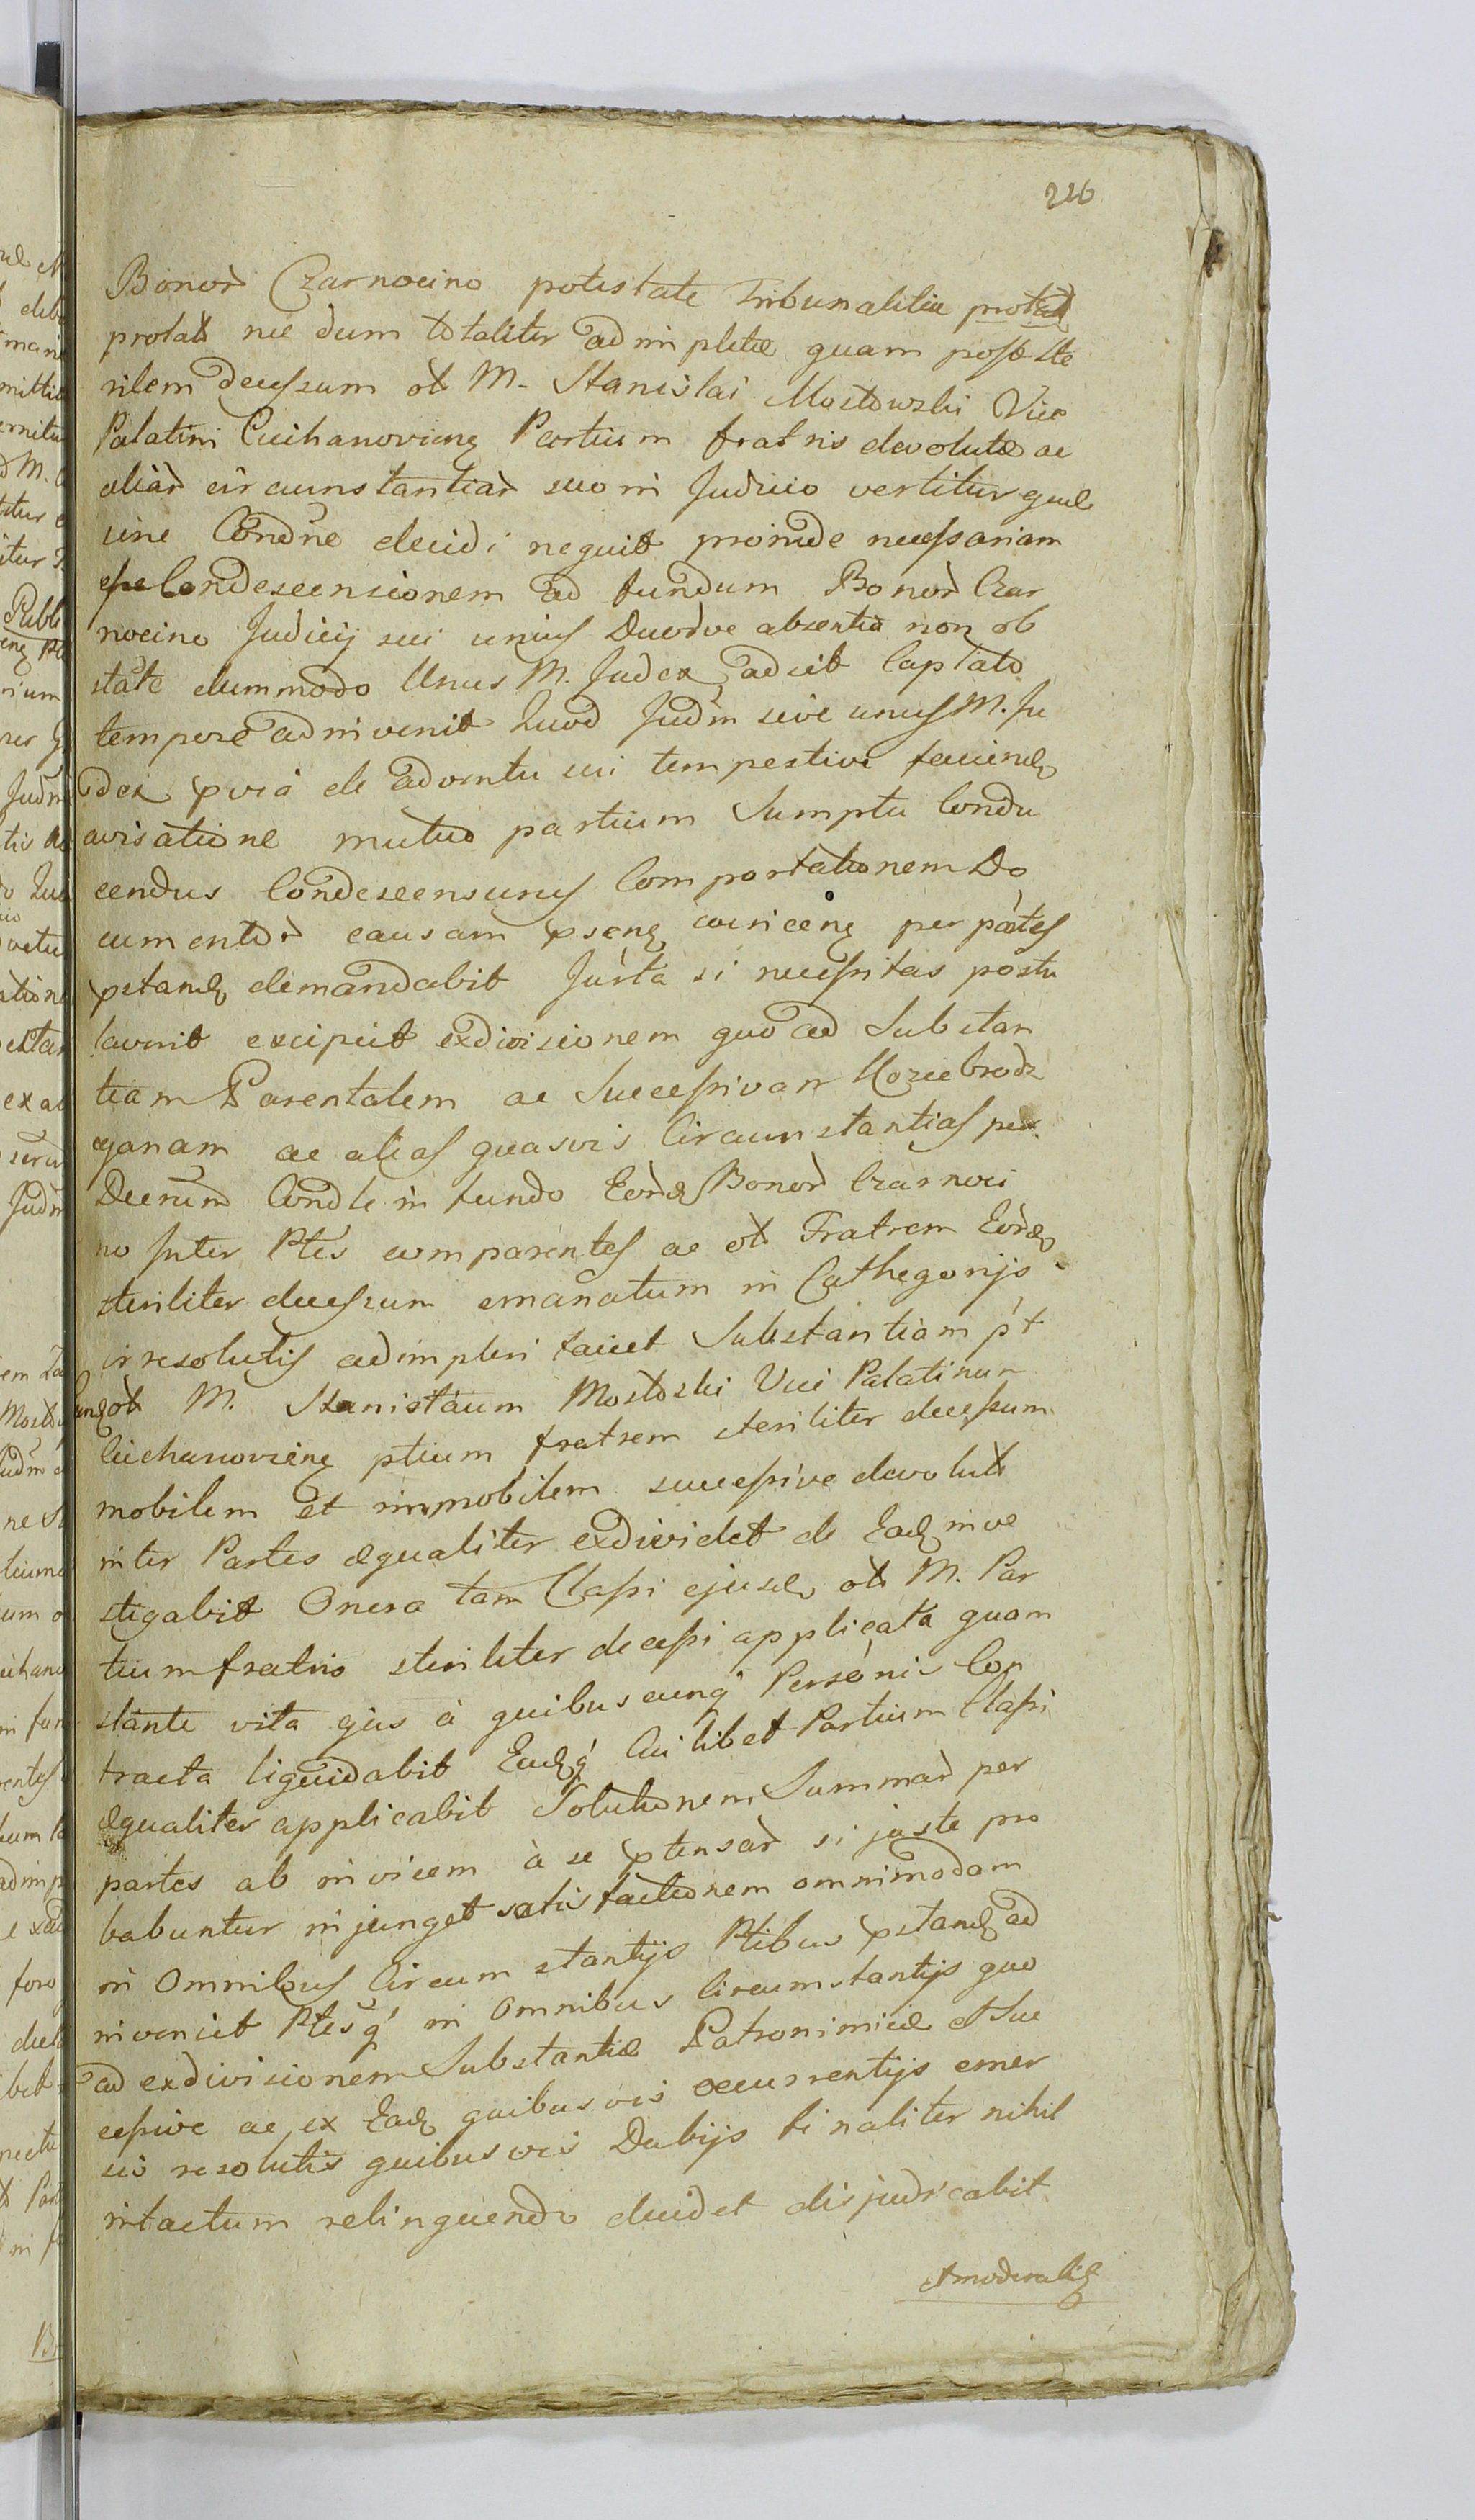 226
Bonor Czarnocino potestate Tribunalitia protat
protat nec dum totaliter ad impletæ quam post ste
rilem decessum ol M. Stanislai Mostowski Vice
Palatini Ciechanoviens Partium fratris devolutæ ac
aliar circumstantiar suo in Judicio vertitur quæ
sine Condne decidi nequit proinde necessariam
esse Condescensionem ad fundum Bonor Czar
nocino Judicij sui unius Duorve absentia non ob
state dummodo Unus M. Judex adsit Captato
tempore adinvenit Quod Judm sive unus M. Ju
dex pvia de adventu sui tempestive faciend
avisatione mutuo partium Sumptu Condu
cendus Condescensurus Comportationem Do
cumentor causam psent concernen per partes
pstand demandabit Jurta si necessitas postu
laverit excipiet exdivisionem quo ad Substan
tiam Parentalem ac Successivam Koziebrodz
cyanam ac alias quasvis Circumstantias per
Decrum Condle in fundo Eord Bonor Czarnoci
no Inter Ptes comparentes ac ol Fratrem Eord
steriliter decessum emanatum in Cathegorijs
irresolutis adimpleri faciet Substantiam pt
ol M. Stanislaum Mostoski Vice Palatinum
Ciechanoviens ptium fratrem steriliter decessum
mobilem et immobilem successive devolut
inter Partes æqualiter exdividet de Ead inve
stigabit Onera tam Massi ejusd ol M. Par
tium fratris steriliter decessi applicata quam
stante vita ejus à quibuscunq Personis Con
tracta liquidabit Eadq Cuilibet Partium Massi
æqualiter applicabit Solutionem Summar per
partes ab invicem à se ptensar si juste pro
babuntur injunget satisfactionem omnimodam
in Omnibus Circumstantijs Ptibus pstand ad
inveniet Ptesq in Omnibus Circumstantijs quo
ad exdivisionem Substantiæ Patronimicæ et Suc
cessive ac ex Ead quibusvis occurrentijs emer
sis resolutis quibusvis Dubijs finaliter nihil
intactum relinquendo decidet disjudicabit
et moderabit